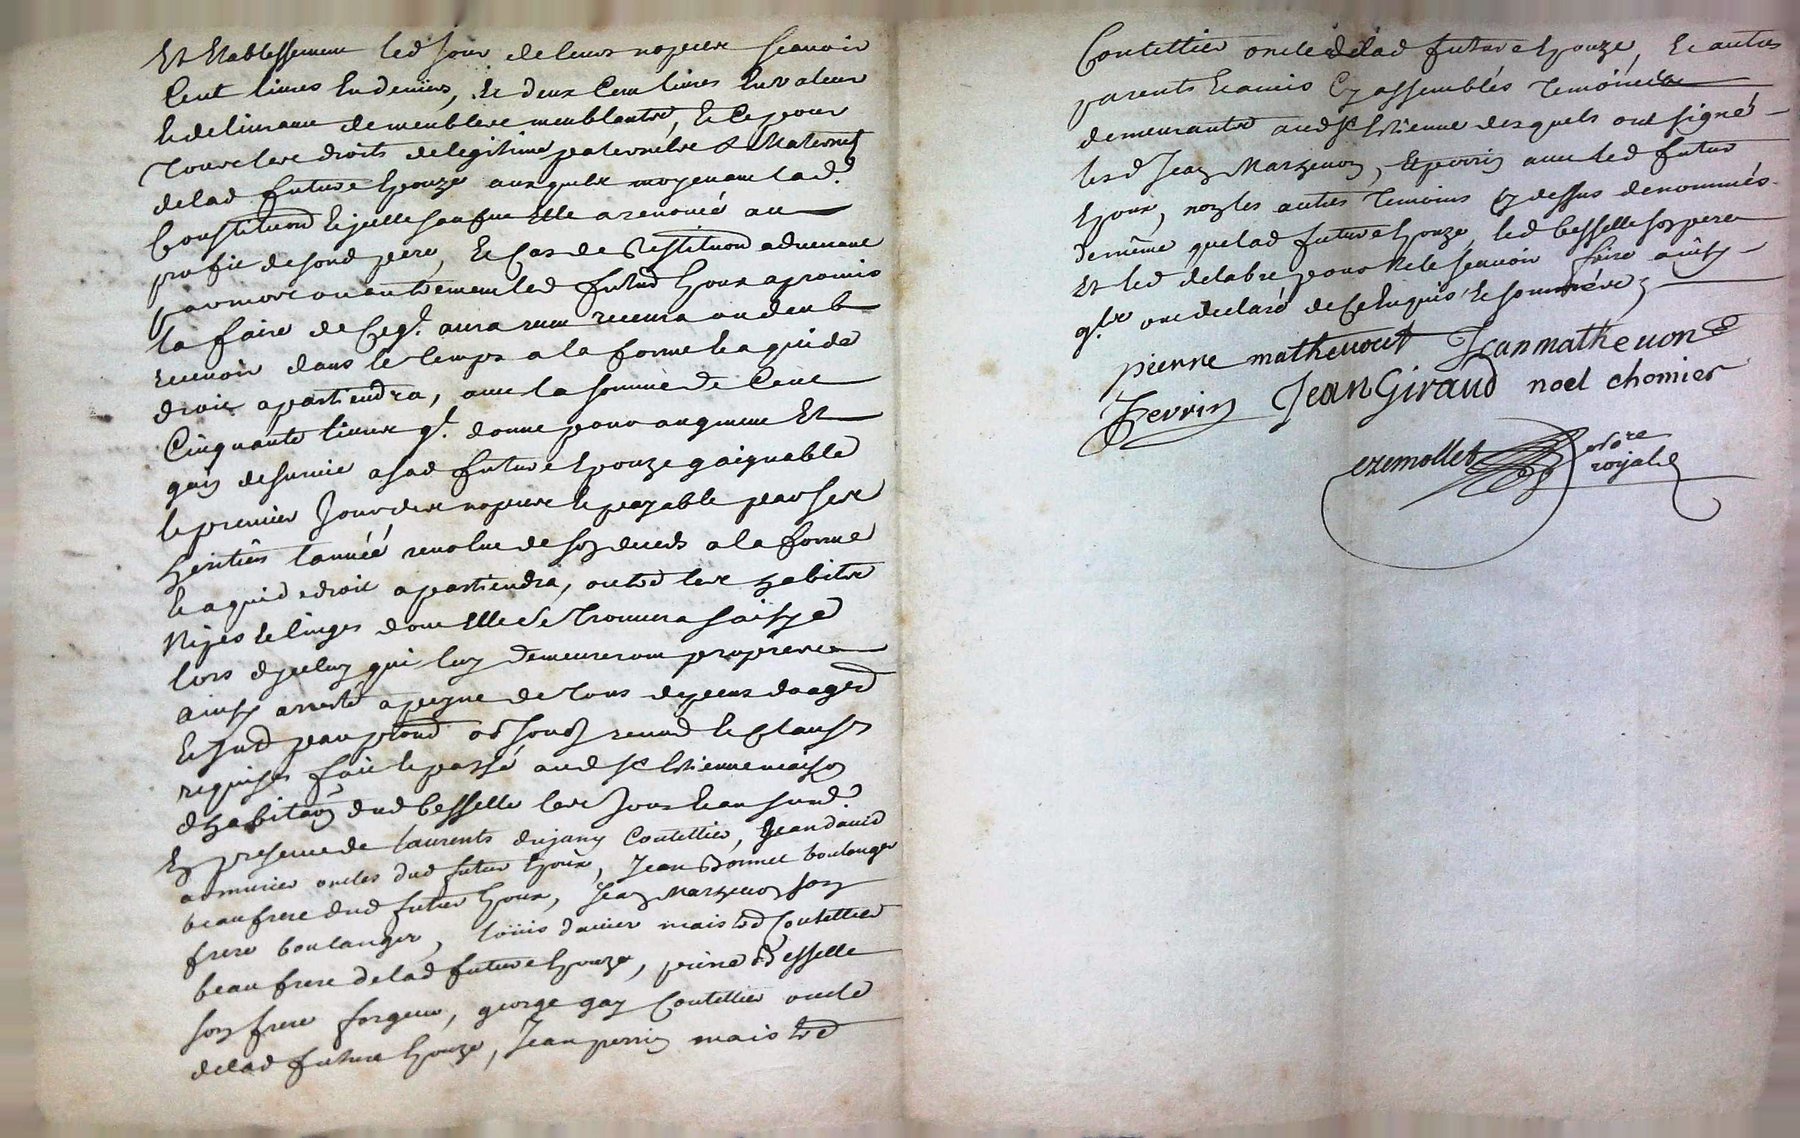 Et Etablissement led Jour de leurs nopces scavoir
Cent livres En deniers, Et deux Cent livres En valeur
Et delivrance de meubles meublants, Et Ce pour
Tous les droits de legitime paternels & Maternels
delad future Epouze auxquels moyenant lad.
Constitution Ejcelle sauf que Elle a renoncé au
profit de sond pere, Et Cas de Restitution advenant
par mort ou autrement led futur Epoux a promis
la faire de Ce ql. aura reçu recevra ou deub
recevoir dans le temps a la forme Et a qui de
droit apartiendra, avec la somme de Cent
Cinquante livres ql. donne pour augment Et
gain de survie a sad future Epouze gaignable
le premier Jour des nopces Et payable par ses
heritiers l'année revolue de son deceds a la forme
Et a qui de droit apartiendra, outre les habits
Et linges dont Elle se Trouvera saisye
lors dyceluy qui luy demeureront propres
ainsy arresté a peyne de Tous depens domages
Et Jnt
requises fait Et passé aud St Etienne maison
d'habitaon dud besselle les Jour Et an susd.
En presence de laurents dujany Coutellier, Jean david
armurier oncles dud futur Epoux, Jean Bonnet boulanger
beaufrere dud futur Epoux, Jean Marthenon son
frere boulanger, loüis davier mais tre Coutellier
beaufrere delad future Epouze, Besselle
son frere forgeur, george gay Coutellier oncle
delad future Epouze, Jean perrin mais tre
Coutellier oncle delad future Epouze, Et autres
parents Et amis Cy assemblés Temoins
demeurants aud St Etienne desquels ont signé
lesd Jean Marthenon, Et perrin avec led futur
Epoux, non les autres Temoins Cy dessus denommés
de même que lad future Epouze, led besselle son pere
Et led delabre pour Ne le scavoir faire ainsy
ql. ont declaré de Ce Enquis Et sommés
pierre mathevont Jean mathevon
Perrin Jean Giraud noel chomier
ezemollet nore
royal